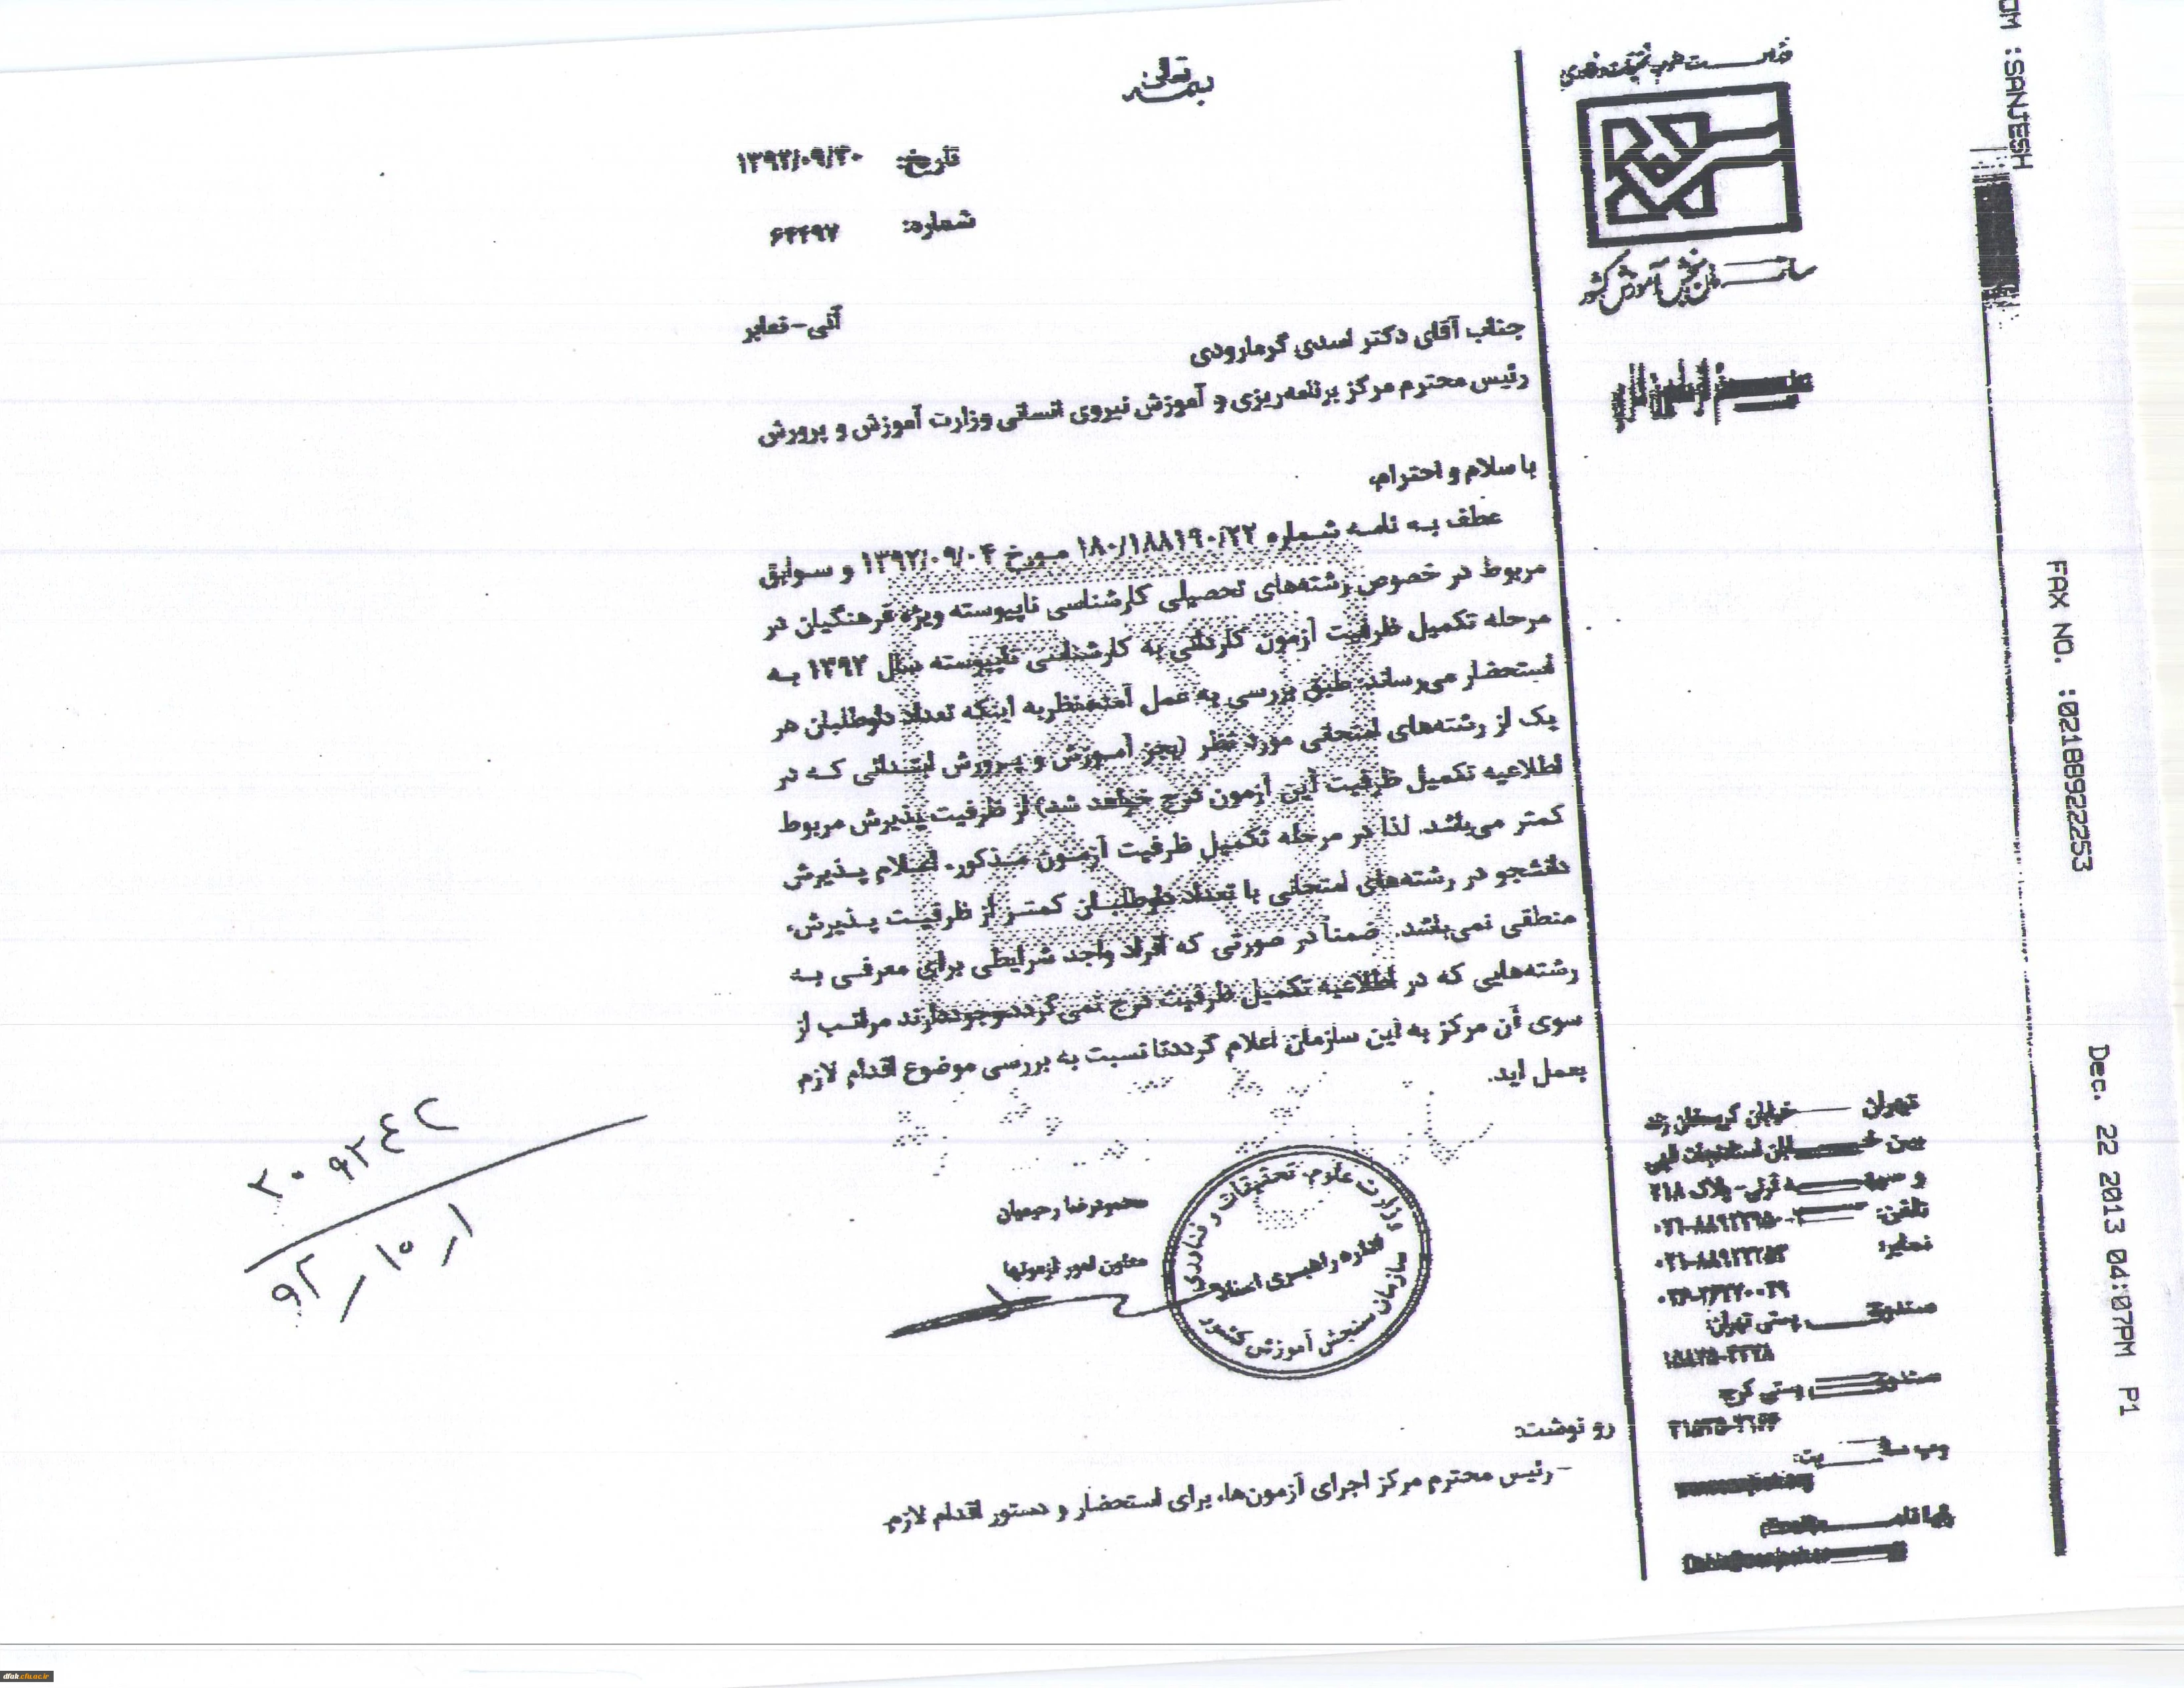 بسمه تعالی
تاریخ: ۱۳۹۲/۰۹/۳۰
شماره: ۶۴۴۹۷
آنی-نمابر
سازمان سنجش آموزش کشور
جناب آقای دکتر اسدی گرمارودی
رئیس محترم مرکز برنامه‌ریزی و آموزش نیروی انسانی وزارت آموزش و پرورش
با سلام و احترام،
عطف به نامه شماره ۱۸۰/۱۸۸۱۹۰/۲۲ مورخ ۱۳۹۲/۰۹/۰۴ و سوابق
مربوط در خصوص رشته‌های تحصیلی کارشناسی ناپیوسته ویژه فرهنگیان در
مرحله تکمیل ظرفیت آزمون کاردانی به کارشناسی ناپیوسته سال ۱۳۹۲ به
استحضار می‌رساند: طبق بررسی به عمل آمده‌نظربه اینکه تعداد داوطلبان هر
یک از رشته‌های امتحانی مورد نظر (بجز آموزش و پرورش ابتدائی که در
اطلاعیه تکمیل ظرفیت این آزمون درج خواهد شد) از ظرفیت پذیرش مربوط
کمتر می‌باشد. لذا در مرحله تکمیل ظرفیت آزمون مذکور، اعلام پذیرش
دانشجو در رشته‌های امتحانی با تعداد داوطلبان کمتر از ظرفیت پذیرش،
منطقی نمی‌باشد. ضمناً در صورتی که افراد واجد شرایطی برای معرفی به
رشته‌هایی که در اطلاعیه تکمیل ظرفیت درج نمی‌گرددوجوددارند مراتب از
سوی آن مرکز به این سازمان اعلام گرددتا نسبت به بررسی موضوع اقدام لازم
بعمل اید.
محمودرضا رحیمیان
معاون امور آزمونها
وزارت علوم، تحقیقات و فناوری
اداره راهبری اسناد
سازمان سنجش آموزش کشور
رو نوشت:
-رئیس محترم مرکز اجرای آزمون‌ها، برای استحضار و دستور اقدام لازم.
۹۲-۱۰-۱
تهران خیابان کریمخان زند
تلفن:
نمابر:
پستی تهران:
پستی کرج
OM :SANJESH
FAX NO. :02188922253
Dec. 22 2013 04:07PM P1
dfak.cfu.ac.ir